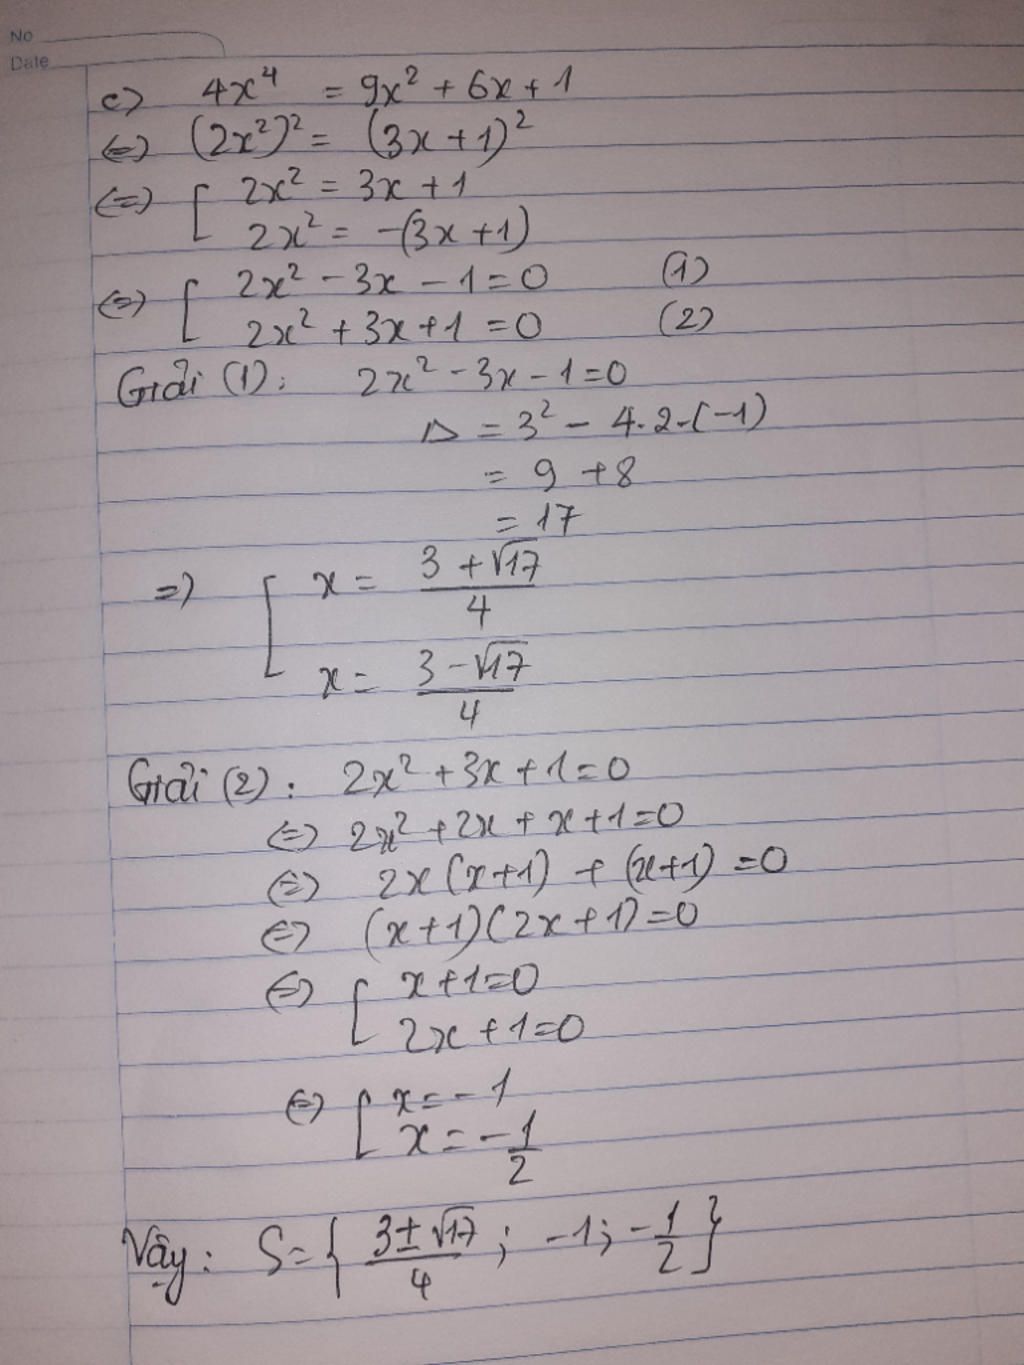 No
Date
c) 4x⁴ = 9x² + 6x + 1
⇔ (2x²)² = (3x + 1)²
⇔ [ 2x² = 3x + 1
2x² = -(3x + 1)
⇔ [ 2x² - 3x - 1 = 0 (1)
2x² + 3x + 1 = 0 (2)
Giải (1): 2x² - 3x - 1 = 0
Δ = 3² - 4.2.(-1)
= 9 + 8
= 17
=> [ x = (3 + √17)/4
x = (3 - √17)/4
Giải (2): 2x² + 3x + 1 = 0
⇔ 2x² + 2x + x + 1 = 0
⇔ 2x(x + 1) + (x + 1) = 0
⇔ (x + 1)(2x + 1) = 0
⇔ [ x + 1 = 0
2x + 1 = 0
⇔ [ x = -1
x = -1/2
Vậy: S = { (3 ± √17)/4 ; -1; -1/2 }